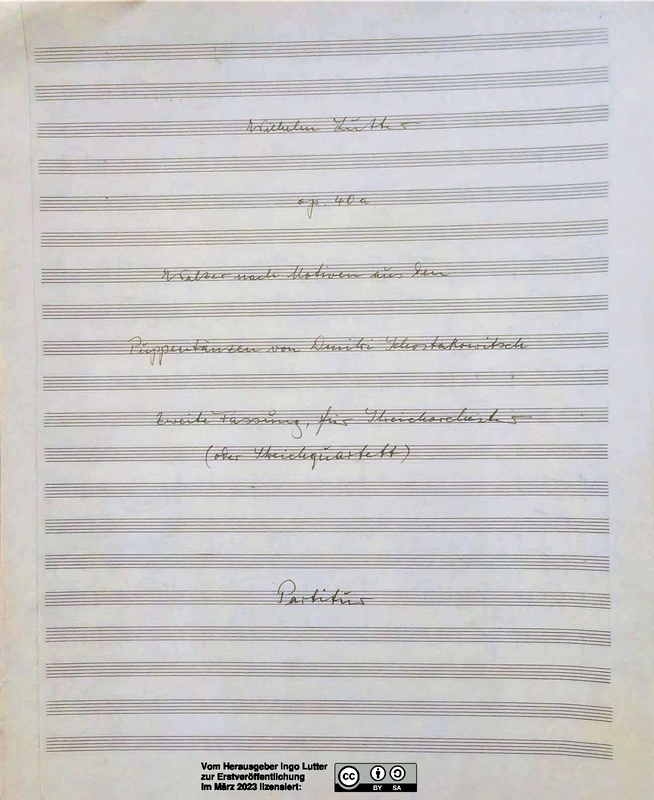 Wilhelm Lutter
op. 40a
Walzer nach Motiven aus den
Puppentänzen von Dmitri Schostakowitsch
Zweite Fassung, für Streichorchester
(oder Streichquartett)
Partitur
Vom Herausgeber Ingo Lutter
zur Erstveröffentlichung
im März 2023 lizensiert:
cc BY SA